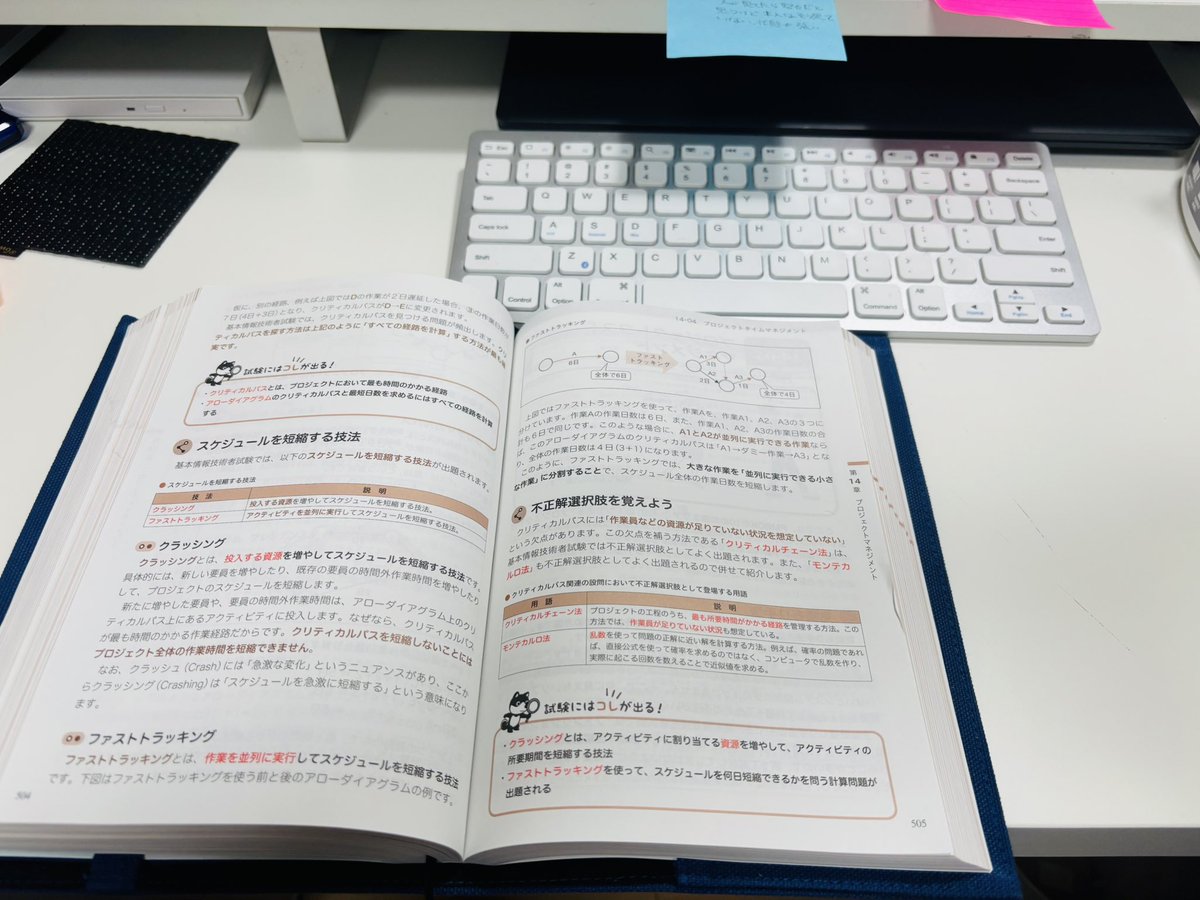 仮に、別の経路、例えば上図ではDの作業が2日遅延した場合、③の作業日数は
7日(4日+3日)となり、クリティカルパスがD→Eに変更されます。
基本情報技術者試験では、クリティカルパスを見つける問題が頻出します。クリ
ティカルパスを探す方法は上記のように「すべての経路を計算」する方法が最も確
実です。
試験にはコレが出る！
・クリティカルパスとは、プロジェクトにおいて最も時間のかかる経路
・アローダイアグラムのクリティカルパスと最短日数を求めるにはすべての経路を計算
する
スケジュールを短縮する技法
基本情報技術者試験では、以下のスケジュールを短縮する技法が出題されます。
●スケジュールを短縮する技法
技法 説明
クラッシング 投入する資源を増やしてスケジュールを短縮する技法。
ファストトラッキング アクティビティを並列に実行してスケジュールを短縮する技法。
クラッシング
クラッシングとは、投入する資源を増やしてスケジュールを短縮する技法です。
具体的には、新しい要員を増やしたり、既存の要員の時間外作業時間を増やしたり
して、プロジェクトのスケジュールを短縮します。
新たに増やした要員や、要員の時間外作業時間は、アローダイアグラム上のクリ
ティカルパス上にあるアクティビティに投入します。なぜなら、クリティカルパス
が最も時間のかかる作業経路だからです。クリティカルパスを短縮しないことには
プロジェクト全体の作業時間を短縮できません。
なお、クラッシュ(Crash)には「急激な変化」というニュアンスがあり、ここか
らクラッシング(Crashing)は「スケジュールを急激に短縮する」という意味になり
ます。
ファストトラッキング
ファストトラッキングとは、作業を並列に実行してスケジュールを短縮する技法
です。下図はファストトラッキングを使う前と後のアローダイアグラムの例です。
504
14-04 プロジェクトタイムマネジメント
●ファストトラッキング
A
6日
全体で6日
ファスト
トラッキング
A1
3日
A2
2日
A3
1日
全体で4日
上図ではファストトラッキングを使って、作業Aを、作業A1、A2、A3の3つに
分けています。作業Aの作業日数は6日、また、作業A1、A2、A3の作業日数の合
計も6日で同じです。このような場合に、A1とA2が並列に実行できる作業なら
ば、このアローダイアグラムのクリティカルパスは「A1→ダミー作業→A3」とな
り、全体の作業日数は4日(3+1)になります。
このように、ファストトラッキングでは、大きな作業を「並列に実行できる小さ
な作業」に分割することで、スケジュール全体の作業日数を短縮します。
不正解選択肢を覚えよう
クリティカルパスには「作業員などの資源が足りていない状況を想定していない」
という欠点があります。この欠点を補う方法である「クリティカルチェーン法」は、
基本情報技術者試験では不正解選択肢としてよく出題されます。また、「モンテカ
ルロ法」も不正解選択肢としてよく出題されるので併せて紹介します。
●クリティカルパス関連の設問において不正解選択肢として登場する用語
用語 説明
クリティカルチェーン法 プロジェクトの工程のうち、最も所要時間がかかる経路を管理する方法。この
方法では、作業員が足りていない状況も想定している。
モンテカルロ法 乱数を使って問題の正解に近い解を計算する方法。例えば、確率の問題であれ
ば、直接公式を使って確率を求めるのではなく、コンピュータで乱数を作り、
実際に起こる回数を数えることで近似値を求める。
試験にはコレが出る！
・クラッシングとは、アクティビティに割り当てる資源を増やして、アクティビティの
所要期間を短縮する技法
・ファストトラッキングを使って、スケジュールを何日短縮できるかを問う計算問題が
出題される
505
第14章 プロジェクトマネジメント
Esc
Delete
Backspace
Tab
Q W E R T Y U I O P
Caps lock
A S D F G H J K L
Enter
Shift
Z X C V B N M
Shift
Control
Alt
Option
⌘
⌘
Command
Alt
Option
Home
PgUp
PgDn
End